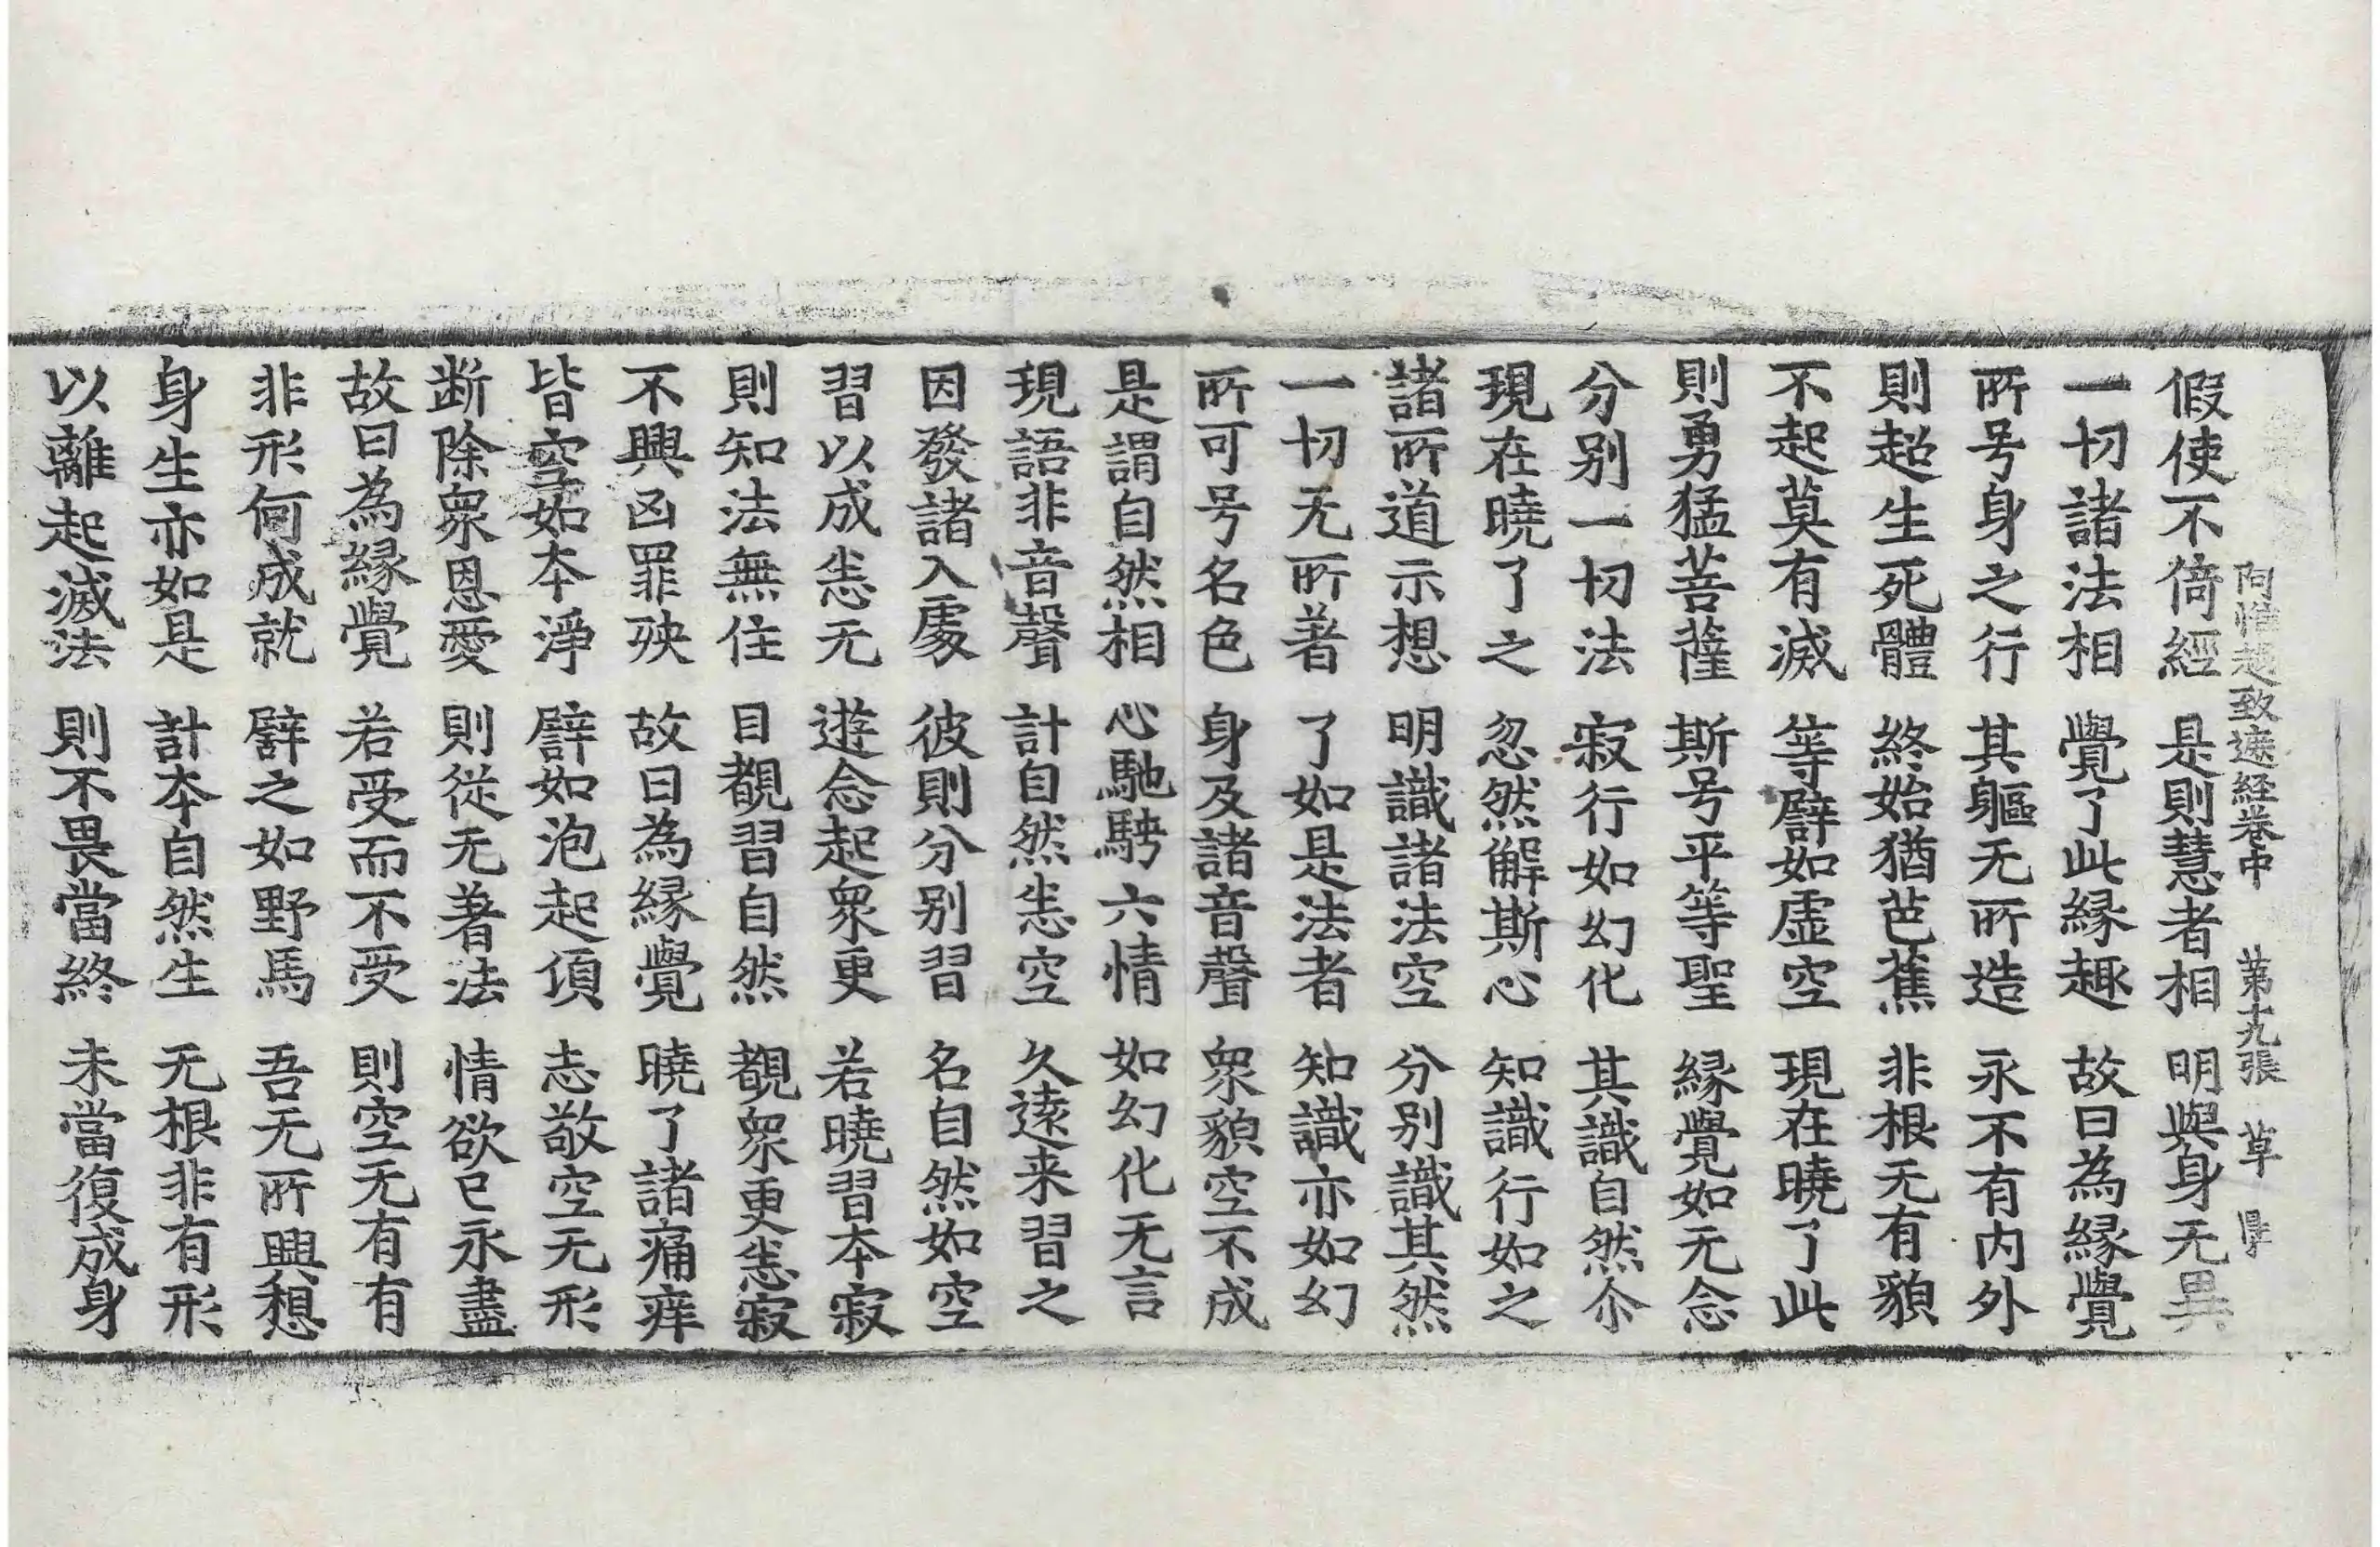 阿惟越致遮経卷中 苐十九張 草
假使不倚經 是則慧者相 明與身无異
一切諸法相 覺了此縁趣 故曰為縁覺
所号身之行 其軀无所造 永不有内外
則超生死體 終始猶芭蕉 非根无有貌
不起莫有滅 等譬如虚空 現在曉了此
則勇猛菩薩 斯号平等聖 縁覺如无念
分别一切法 寂行如幻化 其識自然尒
現在曉了之 忽然解斯心 知識行如之
諸所道示想 明識諸法空 分别識其然
一切无所著 了如是法者 知識亦如幻
所可号名色 身及諸音聲 衆貌空不成
是謂自然相 心馳騁六情 如幻化无言
現語非音聲 計自然恙空 久遠来習之
因發諸入處 彼則分别習 名自然如空
習以成恙无 遊念起衆更 若曉習本寂
則知法無住 目覩習自然 覩衆更恙寂
不興凶罪殃 故曰為縁覺 曉了諸痛痒
皆空如本淨 譬如泡起頃 志敬空无形
断除衆恩愛 則從无著法 情欲已永盡
故曰為縁覺 若受而不受 則空无有有
非形何成就 譬之如野馬 吾无所興想
身生亦如是 計本自然生 无根非有形
以離起滅法 則不畏當終 未當復成身